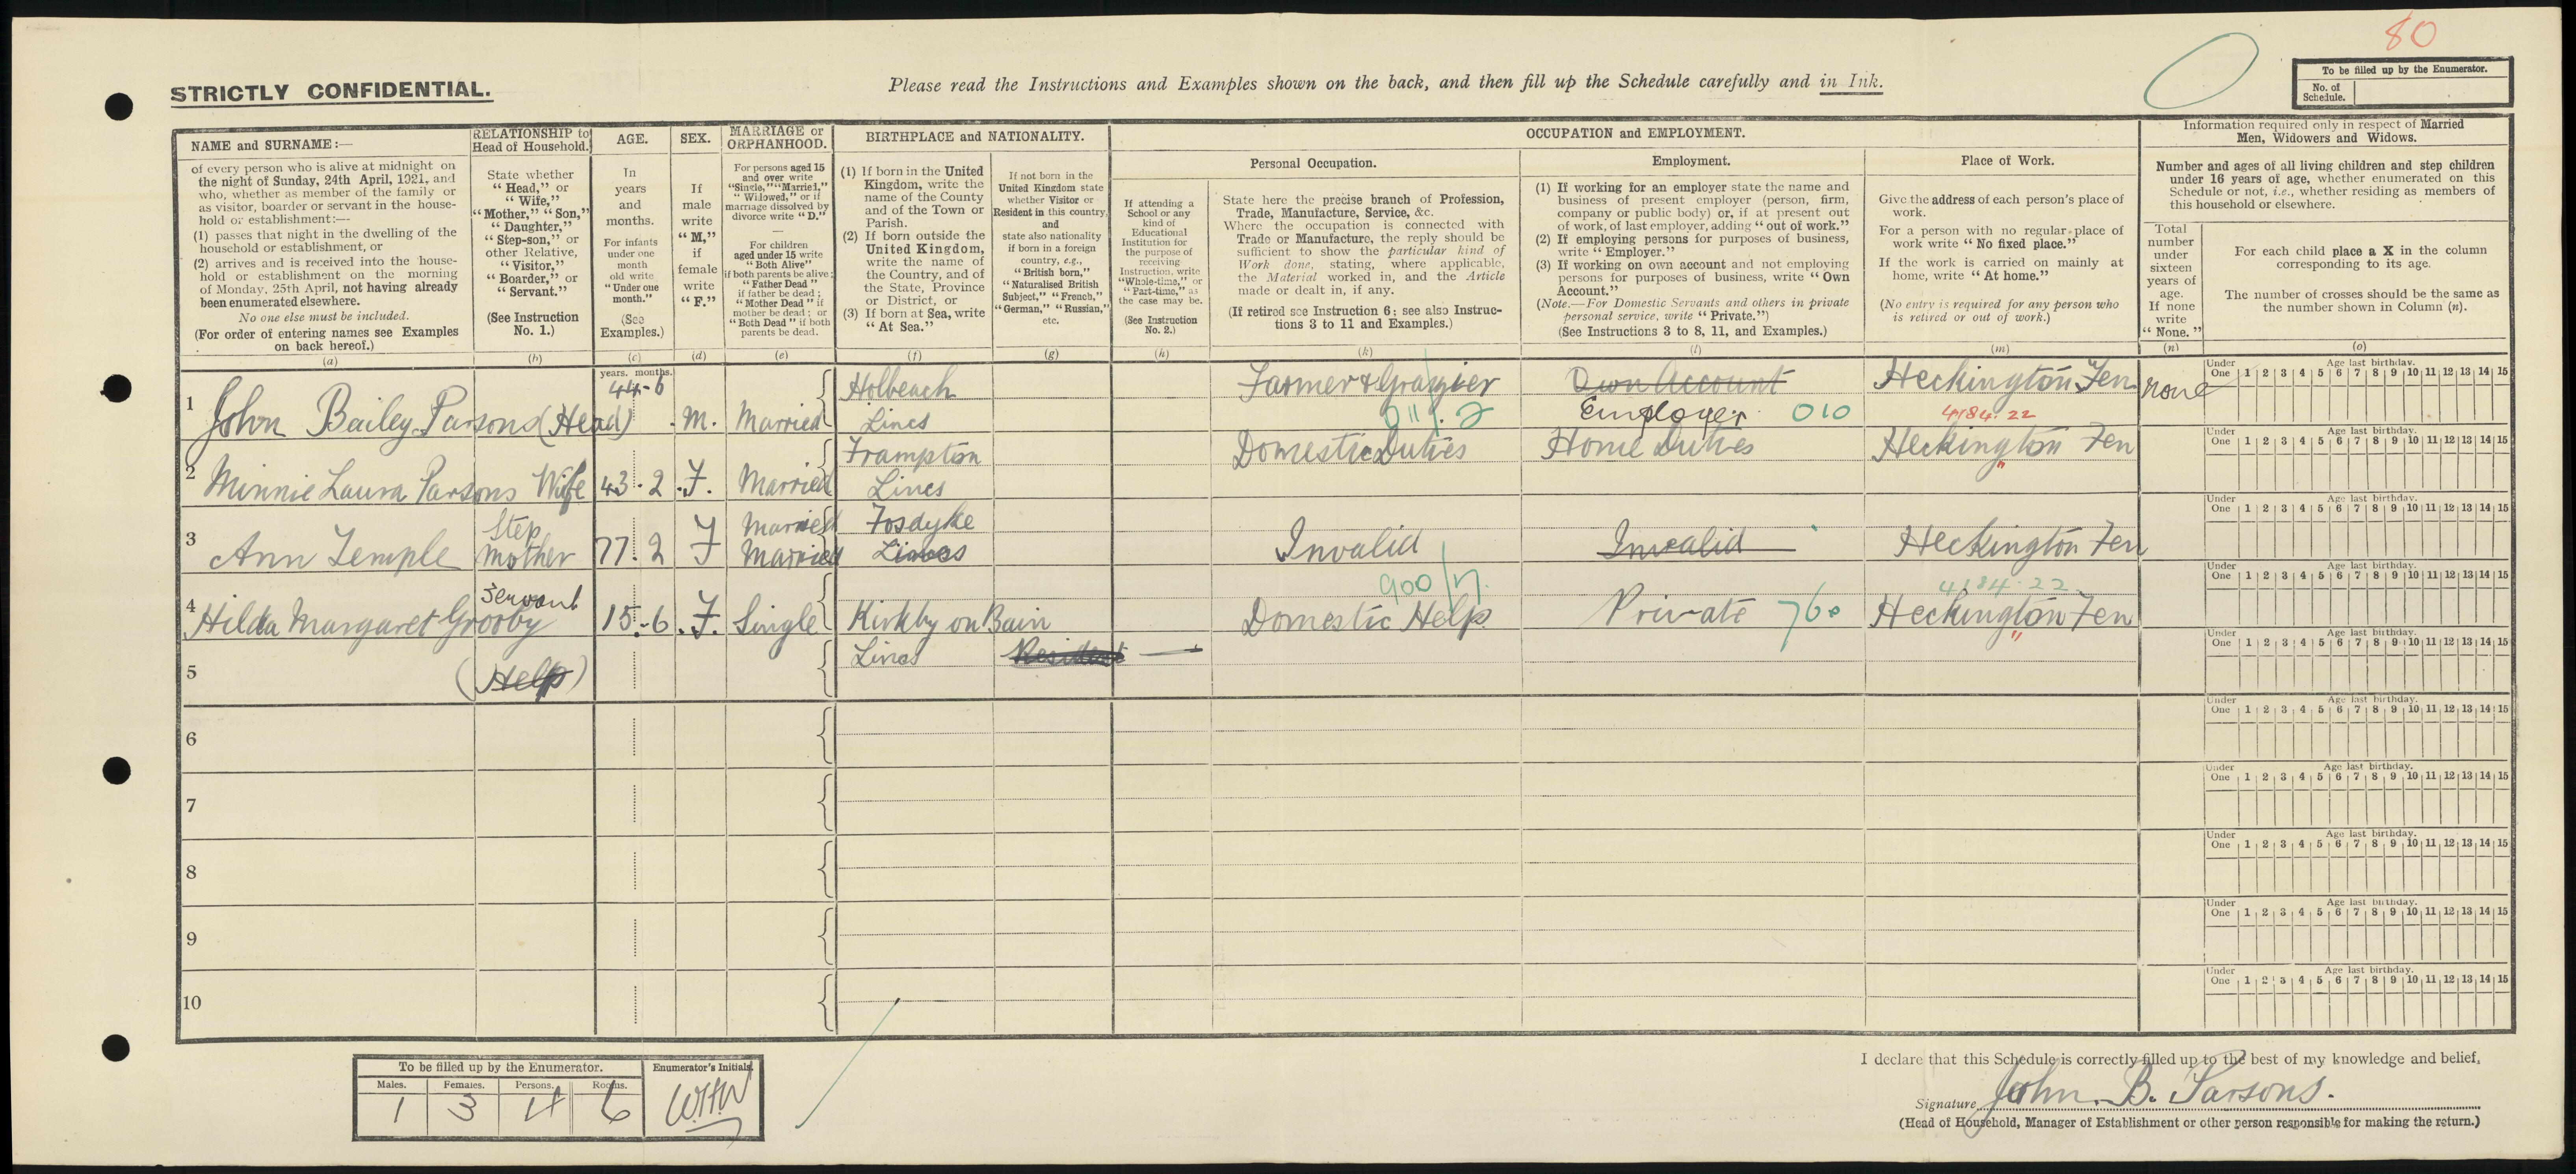 80
STRICTLY CONFIDENTIAL.
Please read the Instructions and Examples shown on the back, and then fill up the Schedule carefully and in Ink.
To be filled up by the Enumerator.
No. of Schedule.
NAME and SURNAME:—
of every person who is alive at midnight on
the night of Sunday, 24th April, 1921, and
who, whether as member of the family or
as visitor, boarder or servant in the house-
hold or establishment:—
(1) passes that night in the dwelling of the
household or establishment, or
(2) arrives and is received into the house-
hold or establishment on the morning
of Monday, 25th April, not having already
been enumerated elsewhere.
No one else must be included.
(For order of entering names see Examples
on back hereof.)
(a)
RELATIONSHIP to
Head of Household.
State whether
"Head," or
"Wife,"
"Mother," "Son,"
"Daughter,"
"Step-son," or
other Relative,
"Visitor,"
"Boarder," or
"Servant."
(See Instruction
No. 1.)
(b)
AGE.
In
years
and
months.
For infants
under one
month
old write
"Under one
month."
(See
Examples.)
(c)
SEX.
If
male
write
"M,"
if
female
write
"F."
(d)
MARRIAGE or
ORPHANHOOD.
For persons aged 15
and over write
"Single," "Married,"
"Widowed," or if
marriage dissolved by
divorce write "D."
For children
aged under 15 write
"Both Alive"
if both parents be alive;
"Father Dead"
if father be dead;
"Mother Dead" if
mother be dead; or
"Both Dead" if both
parents be dead.
(e)
BIRTHPLACE and NATIONALITY.
(1) If born in the United
Kingdom, write the
name of the County
and of the Town or
Parish.
(2) If born outside the
United Kingdom,
write the name of
the Country, and of
the State, Province
or District, or
(3) If born at Sea, write
"At Sea."
(f)
If not born in the
United Kingdom state
whether Visitor or
Resident in this country,
and
state also nationality
if born in a foreign
country, e.g.,
"British born,"
"Naturalised British
Subject," "French,"
"German," "Russian,"
etc.
(g)
OCCUPATION and EMPLOYMENT.
If attending a
School or any
kind of
Educational
Institution for
the purpose of
receiving
Instruction, write
"Whole-time," or
"Part-time," as
the case may be.
(See Instruction
No. 2.)
(h)
Personal Occupation.
State here the precise branch of Profession,
Trade, Manufacture, Service, &c.
Where the occupation is connected with
Trade or Manufacture, the reply should be
sufficient to show the particular kind of
Work done, stating, where applicable,
the Material worked in, and the Article
made or dealt in, if any.
(If retired see Instruction 6; see also Instruc-
tions 3 to 11 and Examples.)
(k)
Employment.
(1) If working for an employer state the name and
business of present employer (person, firm,
company or public body) or, if at present out
of work, of last employer, adding "out of work."
(2) If employing persons for purposes of business,
write "Employer."
(3) If working on own account and not employing
persons for purposes of business, write "Own
Account."
(Note.—For Domestic Servants and others in private
personal service, write "Private.")
(See Instructions 3 to 8, 11, and Examples.)
(l)
Place of Work.
Give the address of each person's place of
work.
For a person with no regular place of
work write "No fixed place."
If the work is carried on mainly at
home, write "At home."
(No entry is required for any person who
is retired or out of work.)
(m)
Information required only in respect of Married
Men, Widowers and Widows.
Number and ages of all living children and step children
under 16 years of age, whether enumerated on this
Schedule or not, i.e., whether residing as members of
this household or elsewhere.
Total
number
under
sixteen
years of
age.
If none
write
"None."
(n)
For each child place a X in the column
corresponding to its age.
The number of crosses should be the same as
the number shown in Column (n).
(o)
years. months.
1 John Bailey Parsons (Head) 44-6 M. Married Holbeach Lincs Farmer & Grazier Own Account Employer 010 Heckington Fen 4184.22 none
Under One Age last birthday. 1 2 3 4 5 6 7 8 9 10 11 12 13 14 15
2 Minnie Laura Parsons Wife 43.2 F. Married Frampton Lincs Domestic Duties Home Duties Heckington Fen
Under One Age last birthday. 1 2 3 4 5 6 7 8 9 10 11 12 13 14 15
3 Ann Temple Step Mother 77.2 F Married Married Fosdyke Lincs Invalid Invalid Heckington Fen
Under One Age last birthday. 1 2 3 4 5 6 7 8 9 10 11 12 13 14 15
4 Hilda Margaret Grooby Servant 15-6 F. Single Kirkby on Bain 900/ Domestic Help Private 760 4184.22 Heckington Fen
Under One Age last birthday. 1 2 3 4 5 6 7 8 9 10 11 12 13 14 15
5 (Help) Lincs Resident —
Under One Age last birthday. 1 2 3 4 5 6 7 8 9 10 11 12 13 14 15
6
Under One Age last birthday. 1 2 3 4 5 6 7 8 9 10 11 12 13 14 15
7
Under One Age last birthday. 1 2 3 4 5 6 7 8 9 10 11 12 13 14 15
8
Under One Age last birthday. 1 2 3 4 5 6 7 8 9 10 11 12 13 14 15
9
Under One Age last birthday. 1 2 3 4 5 6 7 8 9 10 11 12 13 14 15
10
Under One Age last birthday. 1 2 3 4 5 6 7 8 9 10 11 12 13 14 15
To be filled up by the Enumerator.
Males. Females. Persons. Rooms.
1 3 4 6
Enumerator's Initials.
W.H.W
I declare that this Schedule is correctly filled up to the best of my knowledge and belief.
Signature John. B. Parsons.
(Head of Household, Manager of Establishment or other person responsible for making the return.)